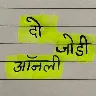 दो
जोडी
ऑनली